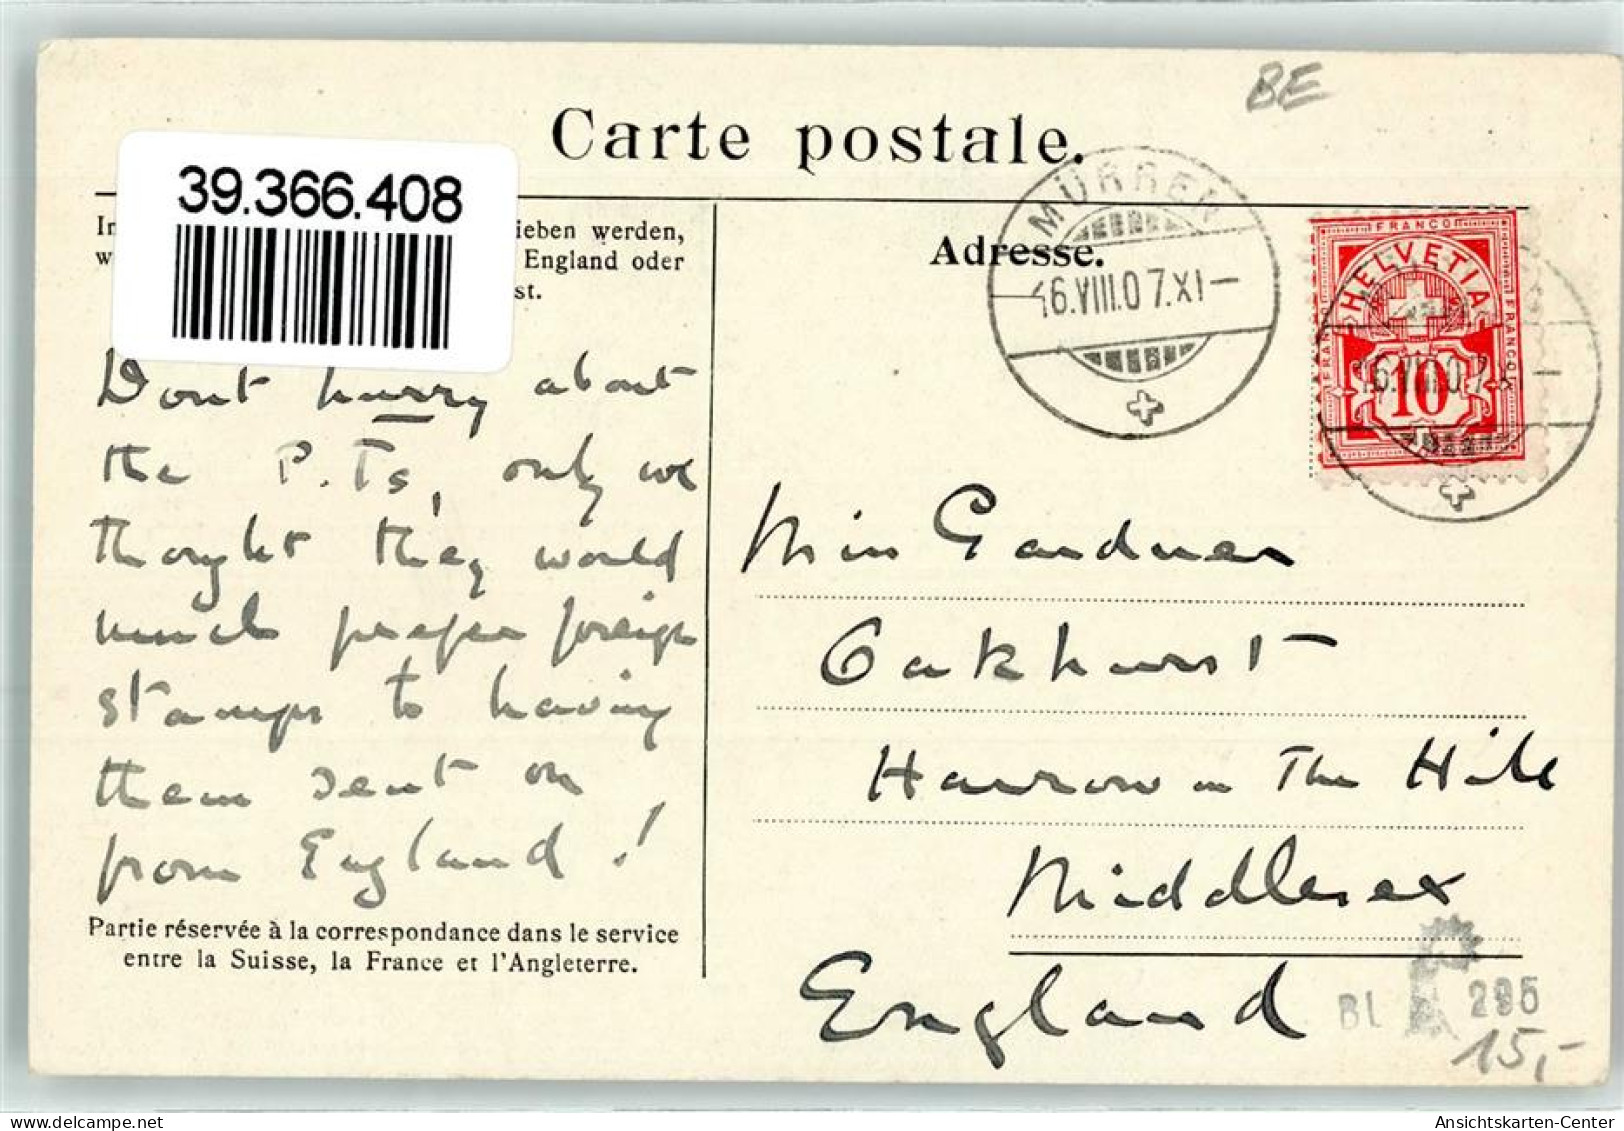 BE
Carte postale.
39.366.408
In ieben werden,
w England oder
st.
Adresse.
MÜRREN
16.VIII.07.XI—
FRANCO
HELVETIA
FRANCO
FRANCO
10
16.VIII.07.X —
Dont hurry about
the P.Ts, only we
thought they would
much prefer foreign
stamps to having
them sent on
from England!
Miss Gardner
Oakhurst
Harrow on The Hill
Middlesex
England
Partie réservée à la correspondance dans le service
entre la Suisse, la France et l'Angleterre.
BL 295
15,-
Ansichtskarten-Center